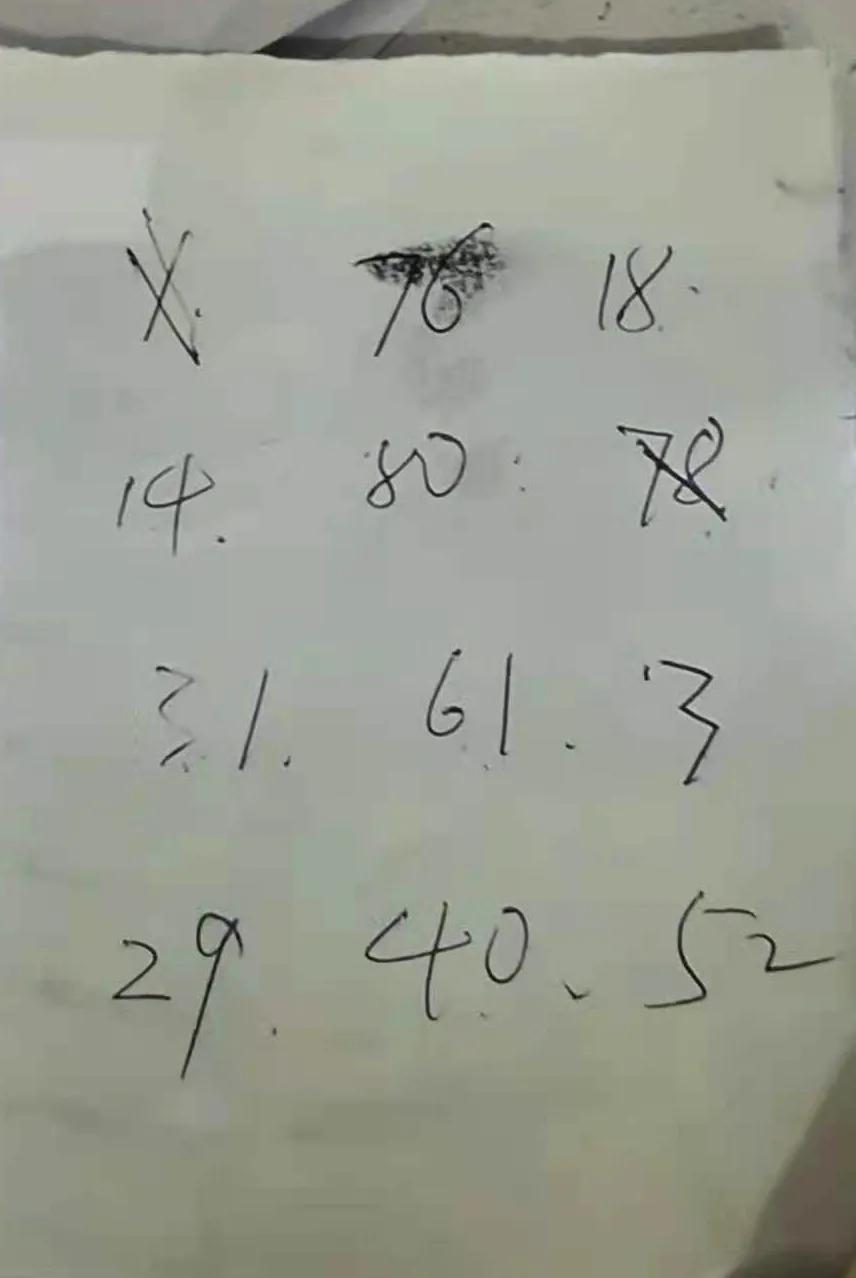 76 18.
14. 80. 78.
31. 61. 3
29. 40、52